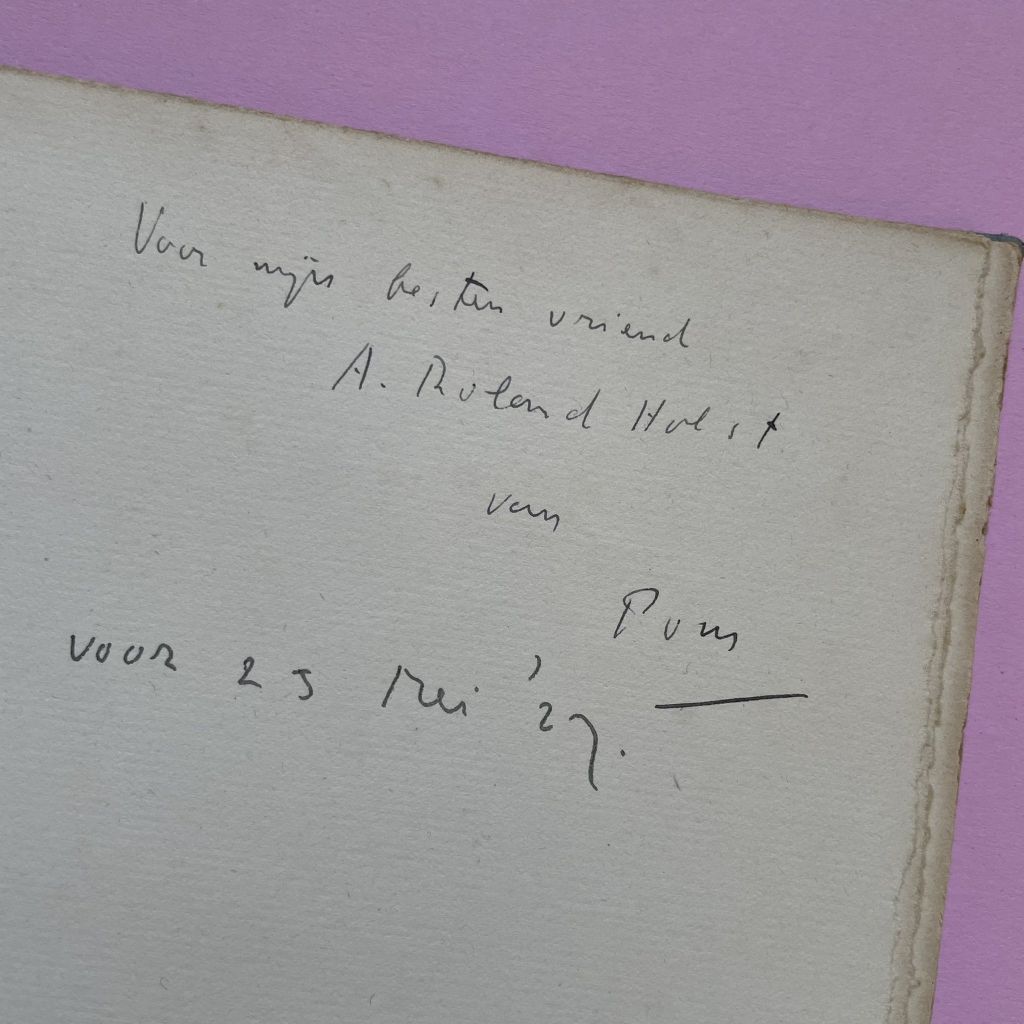 Voor mijn besten vriend
A. Roland Holst
van
Pom
voor 23 Mei '27.